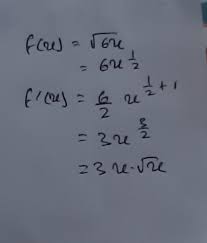 f(x) = √6x
= 6x^{1/2}
f'(x) = 6/2 x^{1/2 + 1}
= 3x^{3/2}
= 3x·√x